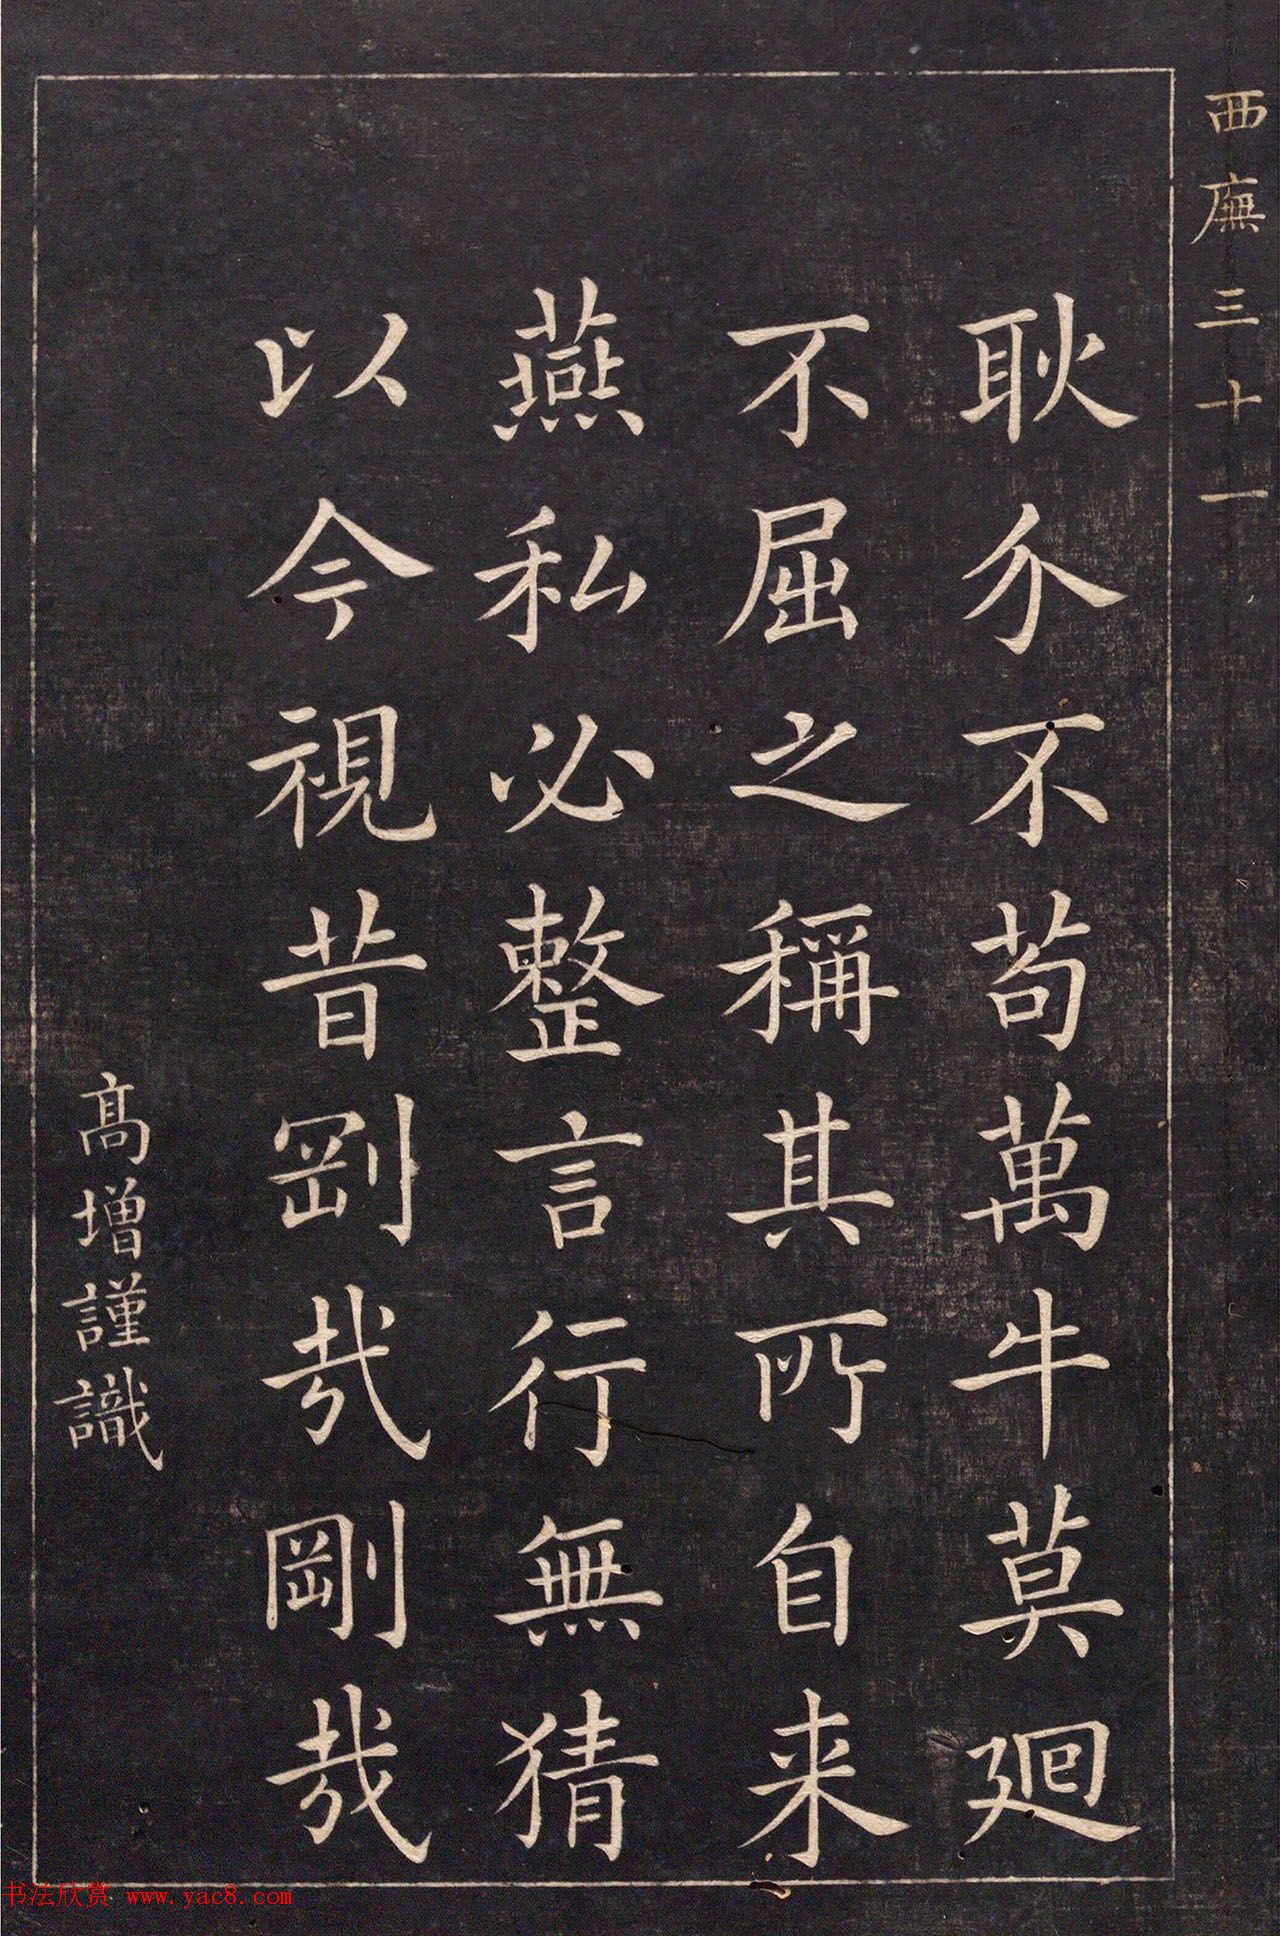 西廡三十一
耿介不苟萬牛莫廻
不屈之稱其所自来
燕私必整言行無猜
以今視昔剛哉剛哉
高增謹識
书法欣赏 www.yac8.com